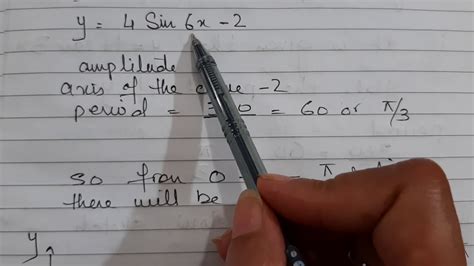 y = 4 Sin 6x - 2
amplitude
axis of the curve -2
period = = 60 or π/3
so from 0
there will be
y